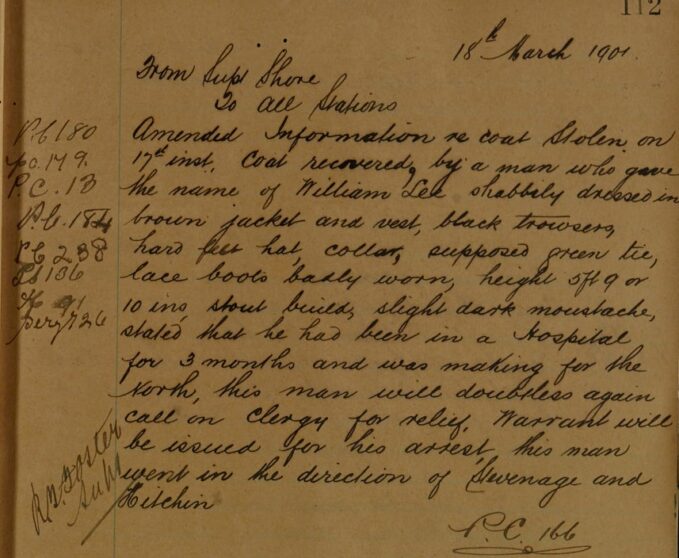 112
18th March 1901.
From Supt Shore
To All Stations
Amended Information re coat Stolen on
17th inst, Coat recovered, by a man who gave
the name of William Lee shabbily dressed in
brown jacket and vest, black trowsers,
hard felt hat, collar, supposed green tie,
lace boots badly worn, height 5ft 9 or
10 ins, stout build, slight dark moustache,
stated that he had been in a Hospital
for 3 months and was making for the
North, this man will doubtless again
call on Clergy for relief. Warrant will
be issued for his arrest, this man
went in the direction of Stevenage and
Hitchin
P.C. 166
P.C 180
P.C. 179.
P.C. 13
P.C. 184
PC 238
136
91
Serg 726
Foster